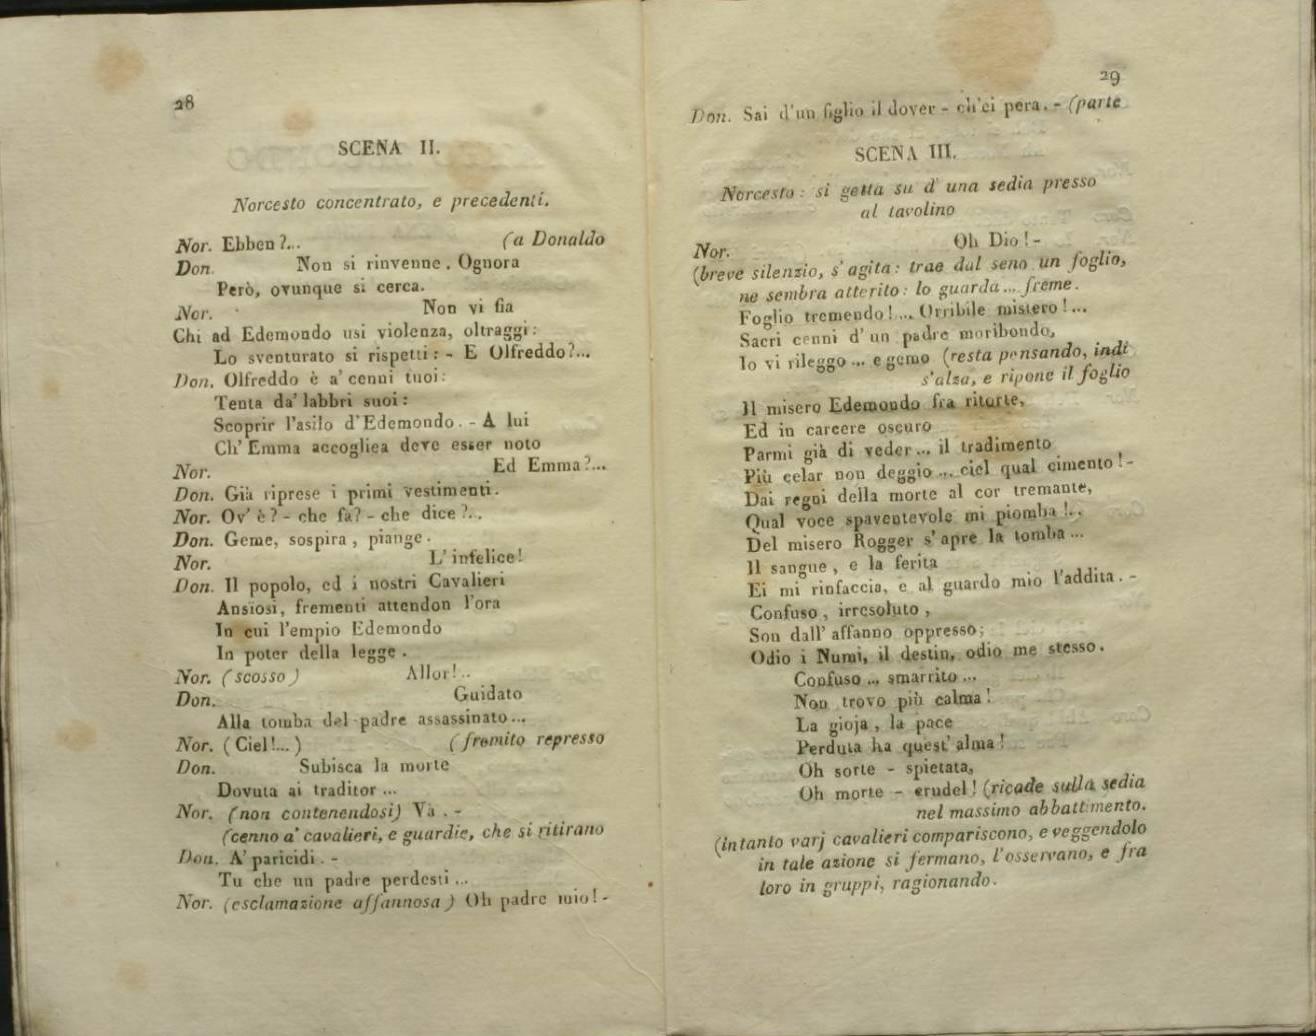 28
SCENA II.
Norcesto concentrato, e precedenti.
Nor. Ebben?... (a Donaldo
Don. Non si rinvenne. Ognora
Però, ovunque si cerca.
Nor. Non vi fia
Chi ad Edemondo usi violenza, oltraggi:
Lo sventurato si rispetti: - E Olfreddo?...
Don. Olfreddo è a' cenni tuoi:
Tenta da' labbri suoi:
Scoprir l'asilo d'Edemondo. - A lui
Ch' Emma accogliea deve esser noto
Nor. Ed Emma?...
Don. Già riprese i primi vestimenti.
Nor. Ov' è? - che fa? - che dice?...
Don. Geme, sospira, piange.
Nor. L' infelice!
Don. Il popolo, ed i nostri Cavalieri
Ansiosi, frementi attendon l'ora
In cui l'empio Edemondo
In poter della legge.
Nor. (scosso) Allor!..
Don. Guidato
Alla tomba del padre assassinato...
Nor. (Ciel!...) (fremito represso
Don. Subisca la morte
Dovuta ai traditor...
Nor. (non contenendosi) Va. -
(cenno a' cavalieri, e guardie, che si ritirano
Don. A' paricidi. -
Tu che un padre perdesti...
Nor. (esclamazione affannosa) Oh padre mio! -
29
Don. Sai d'un figlio il dover - ch'ei pera. - (parte
SCENA III.
Norcesto: si getta su d' una sedia presso
al tavolino
Nor. Oh Dio! -
(breve silenzio, s' agita: trae dal seno un foglio,
ne sembra atterito: lo guarda... freme.
Foglio tremendo!... Orribile mistero!...
Sacri cenni d' un padre moribondo,
Io vi rileggo... e gemo (resta pensando, indi
s'alza, e ripone il foglio
Il misero Edemondo fra ritorte,
Ed in carcere oscuro
Parmi già di veder... il tradimento
Più celar non deggio... ciel qual cimento! -
Dai regni della morte al cor tremante,
Qual voce spaventevole mi piomba!..
Del misero Rogger s' apre la tomba...
Il sangue, e la ferita
Ei mi rinfaccia, e al guardo mio l'addita. -
Confuso, irresoluto,
Son dall' affanno oppresso;
Odio i Numi, il destin, odio me stesso.
Confuso... smarrito...
Non trovo più calma!
La gioja, la pace
Perduta ha quest' alma!
Oh sorte - spietata,
Oh morte - crudel! (ricade sulla sedia
nel massimo abbattimento.
(intanto varj cavalieri compariscono, e veggendolo
in tale azione si fermano, l'osservano, e fra
loro in gruppi, ragionando.